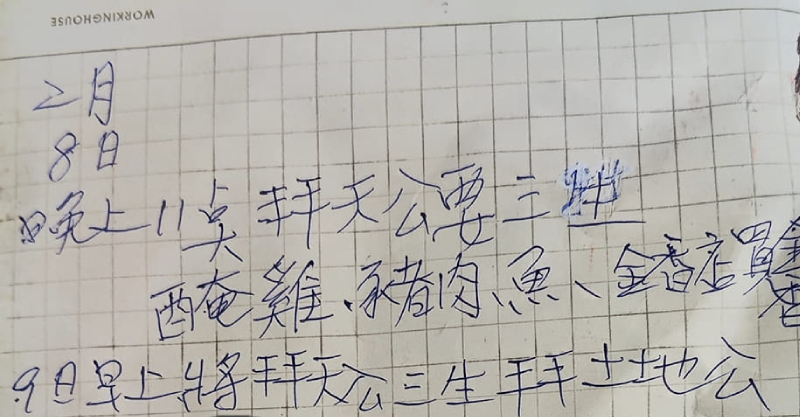 WORKINGHOUSE
2月
8日
晚上11点 拜天公要三牲
醃雞、豬肉、魚、金香店買
9日早上將拜天公三生拜土地公